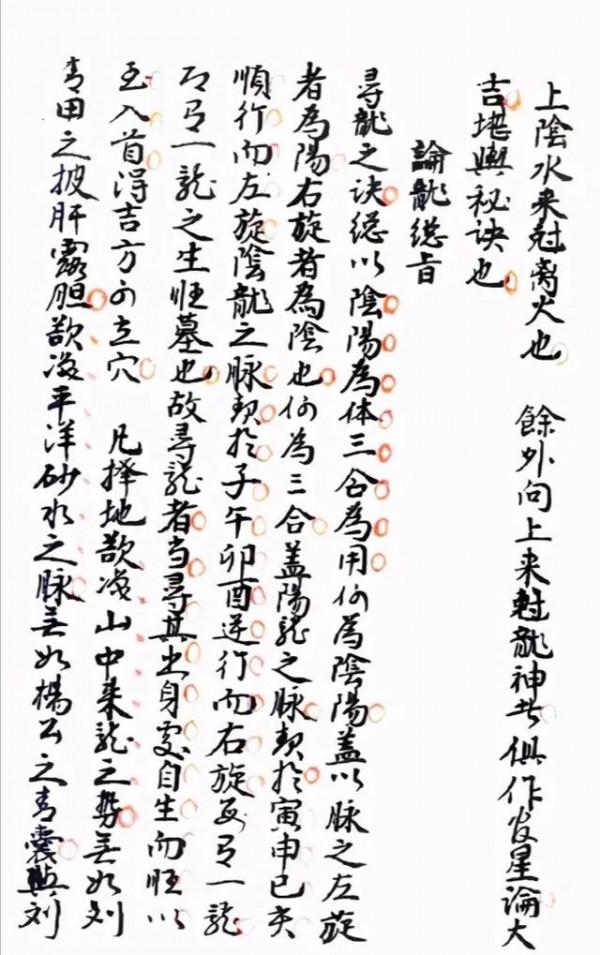 上陰水来尅离火也　餘外向上来尅龍神者俱作殺星論大
吉堪輿秘诀也
論龍總旨
尋龍之诀總以陰陽為体三合為用何為陰陽盖以脉之左旋
者為陽右旋者為陰也何為三合盖陽龍之脉起於寅申巳亥
順行而左旋陰龍之脉起於子午卯酉逆行而右旋每一龍
乃一龍之生旺墓也故尋龍者当尋其出身處自生而旺以
至入首得吉方可立穴　凡擇地欲識山中来龍之势無如刘
青田之披肝露胆欲識平洋砂水之脉無如楊公之青囊與刘